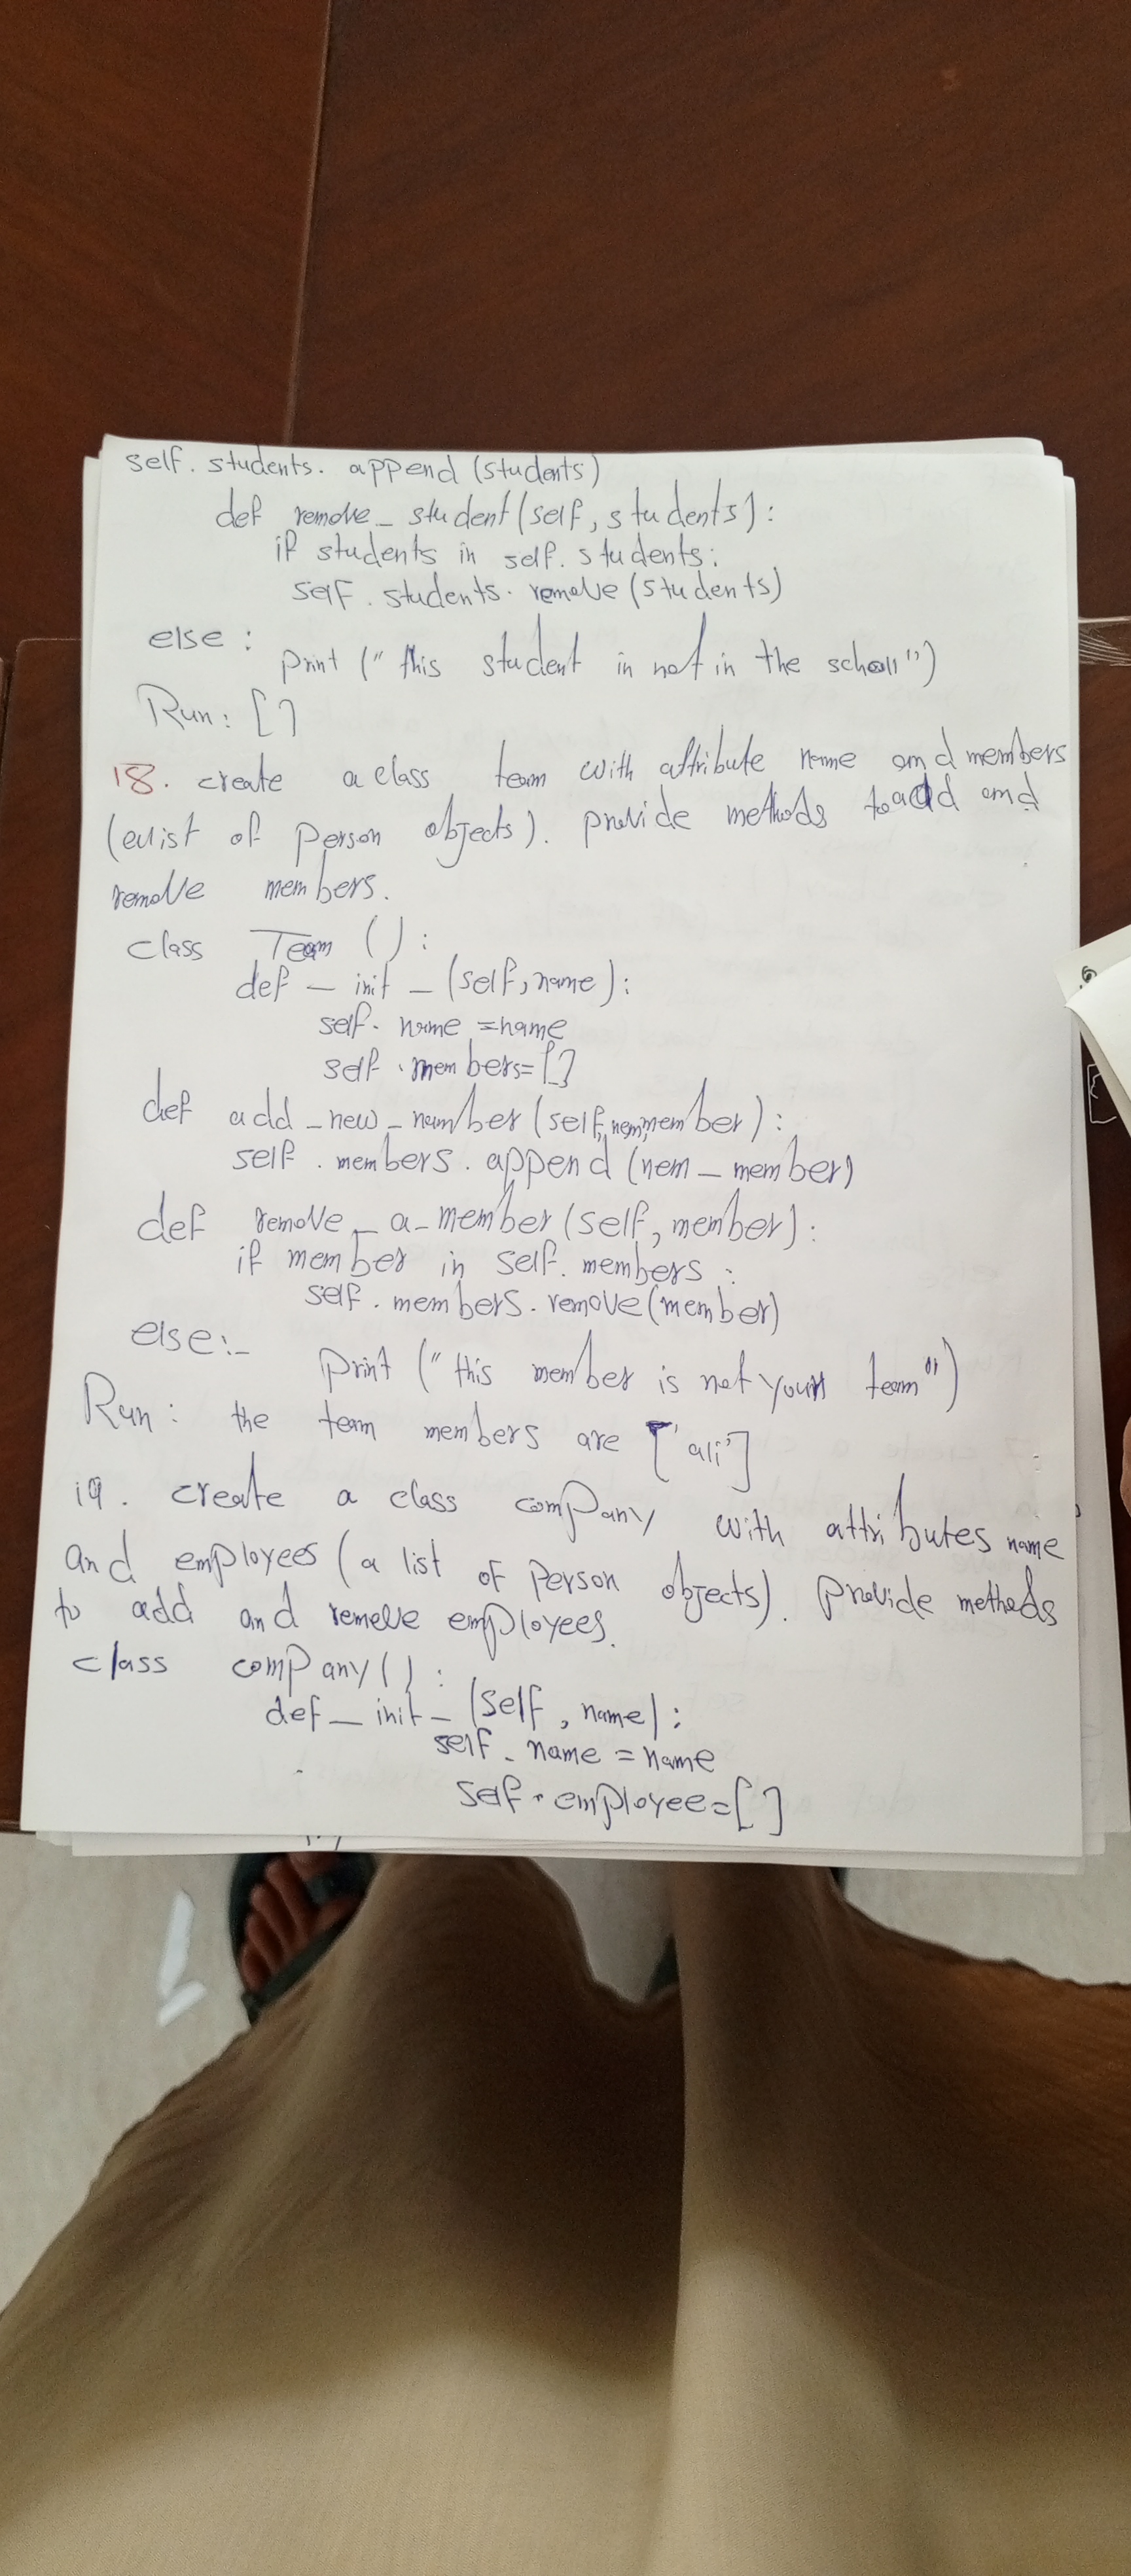 self. students. append (students)
def remove_student(self, students):
if students in self. students:
self. students. remove (students)
else:
print (" this student in not in the scholl")
Run: []
18. create a class team with attribute name and members
(alist of person objects). provide methods to add and
remove members.
class Team ():
def _ init _ (self, name):
self. name =name
self .members=[]
def add _new_ number (self, member):
self . members. append (nem _ member)
def remove _ a_ member (self, member):
if member in self. members :
self. members. remove(member)
else:-
print (" this member is not your team")
Run: the team members are ['ali']
19. create a class company with attributes name
and employees (a list of person objects). provide methods
to add and remove employees.
class company():
def _ init _ (self, name):
self. name = name
self. employee=[]